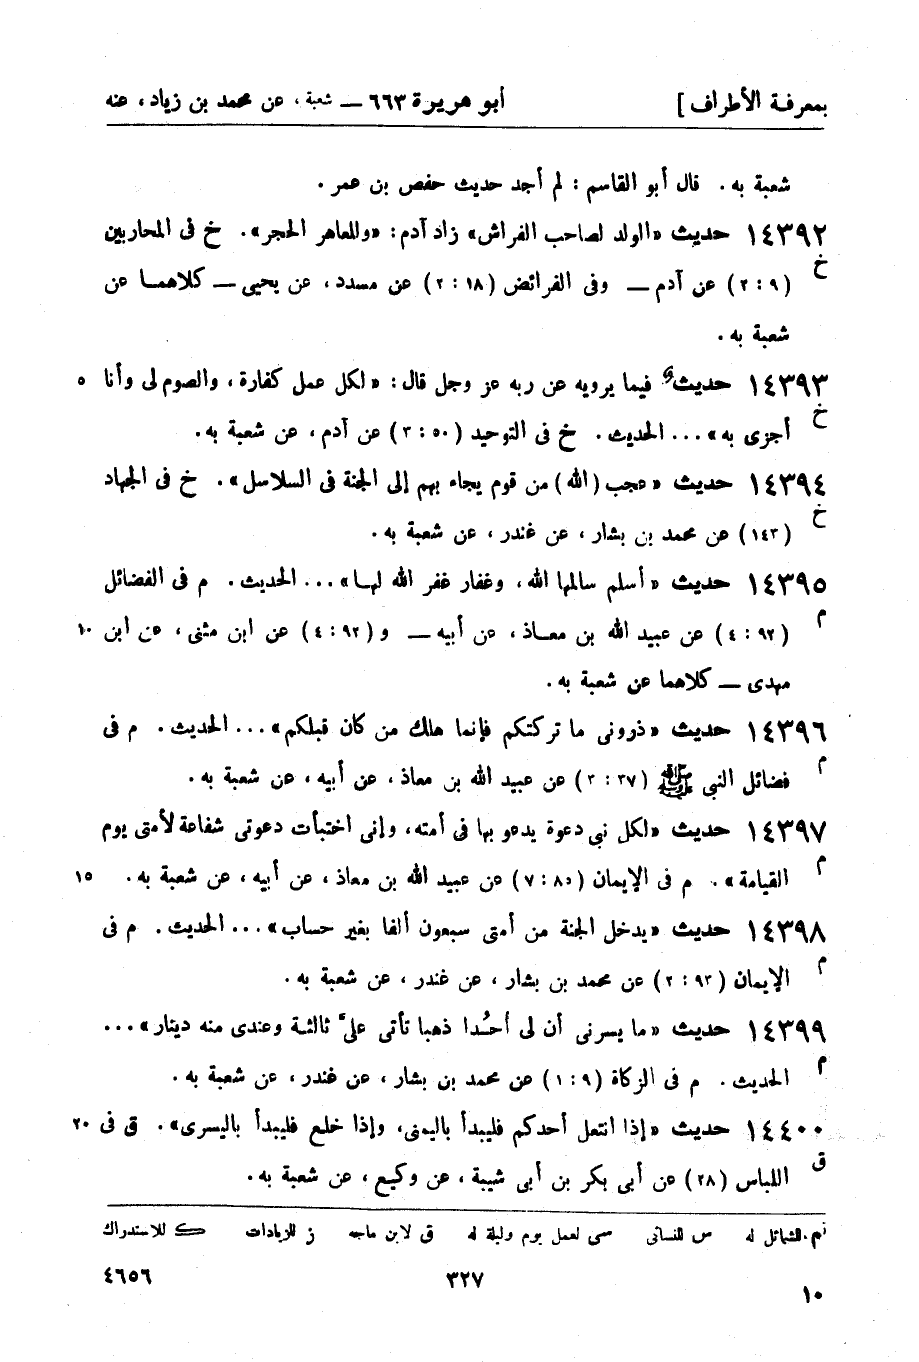 بمعرفة الأطراف ] أبو هريرة ٦٦٣ — شعبة ، عن محمد بن زياد ، عنه
شعبة به . قال أبو القاسم : لم أجد حديث حفص بن عمر .
١٤٣٩٢ حديث «الولد لصاحب الفراش» زاد آدم : «وللعاهر الحجر» . خ فى المحاربين
خ
(٩ : ٢) عن آدم — وفى الفرائض (١٨ : ٢) عن مسدد ، عن يحيى — كلاهما عن
شعبة به .
١٤٣٩٣ حديث فيما يرويه عن ربه عز وجل قال : «لكل عمل كفارة ، والصوم لى وأنا ٥
خ
أجزى به» ... الحديث . خ فى التوحيد (٥٠ : ٣) عن آدم ، عن شعبة به .
١٤٣٩٤ حديث «عجب (الله) من قوم يجاء بهم إلى الجنة فى السلاسل» . خ فى الجهاد
خ
(١٤٣) عن محمد بن بشار ، عن غندر ، عن شعبة به .
١٤٣٩٥ حديث «أسلم سالمها الله ، وغفار غفر الله لها» ... الحديث . م فى الفضائل
م
(٩٢ : ٤) عن عبيد الله بن معاذ ، عن أبيه — و (٩٢ : ٤) عن ابن مثنى ، عن ابن ١٠
مهدى — كلاهما عن شعبة به .
١٤٣٩٦ حديث «ذرونى ما تركتكم فإنما هلك من كان قبلكم» ... الحديث . م فى
م
فضائل النبى ﷺ (٣٧ : ٣) عن عبيد الله بن معاذ ، عن أبيه ، عن شعبة به .
١٤٣٩٧ حديث «لكل نبى دعوة يدعو بها فى أمته ، وإنى اختبأت دعوتى شفاعة لأمتى يوم
م
القيامة» . م فى الإيمان (٨٥ : ٧) عن عبيد الله بن معاذ ، عن أبيه ، عن شعبة به . ١٥
١٤٣٩٨ حديث «يدخل الجنة من أمتى سبعون ألفا بغير حساب» ... الحديث . م فى
م
الإيمان (٩٣ : ٢) عن محمد بن بشار ، عن غندر ، عن شعبة به .
١٤٣٩٩ حديث «ما يسرنى أن لى أحُدا ذهبا تأتى علىّ ثالثة وعندى منه دينار» ...
م
الحديث . م فى الزكاة (٩ : ١) عن محمد بن بشار ، عن غندر ، عن شعبة به .
١٤٤٠٠ حديث «إذا انتعل أحدكم فليبدأ باليمنى ، وإذا خلع فليبدأ باليسرى» . ق فى ٢٠
ق
اللباس (٢٨) عن أبى بكر بن أبى شيبة ، عن وكيع ، عن شعبة به .
تم . الشمائل له س للنسائى سى لعمل يوم وليلة له ق لابن ماجه ز للزيادات ك للاستدراك
٣٢٧ ٤٦٥٦
١٠